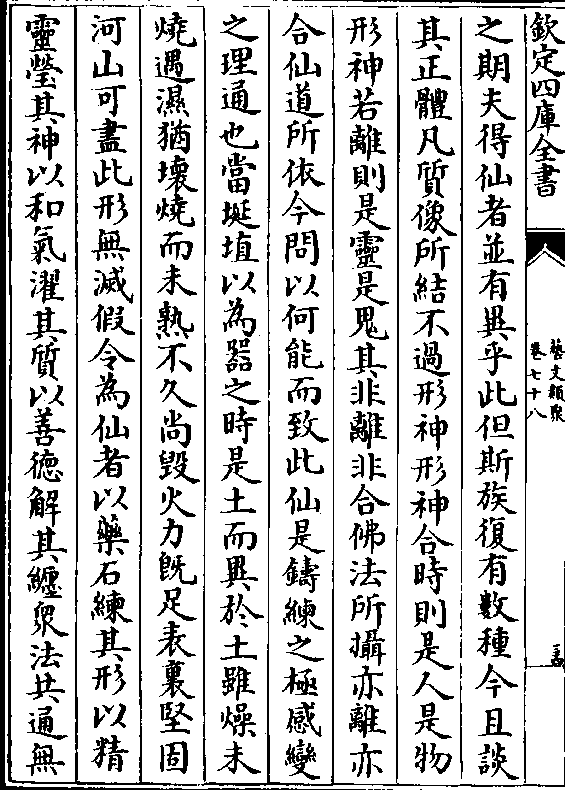 欽定四庫全書
藝文類聚
卷七十八
之期夫得仙者並有異乎此但斯族復有數種今且談
其正體凡質像所結不過形神形神合時則是人是物
形神若離則是靈是鬼其非離非合佛法所攝亦離亦
合仙道所依今問以何能而致此仙是鑄練之極感變
之理通也當埏埴以為器之時是土而異於土雖燥未
燒遇濕猶壞燒而未熟不久尚毀火力既足表裏堅固
河山可盡此形無滅假令為仙者以藥石練其形以精
靈瑩其神以和氣濯其質以善德解其纏衆法共通無